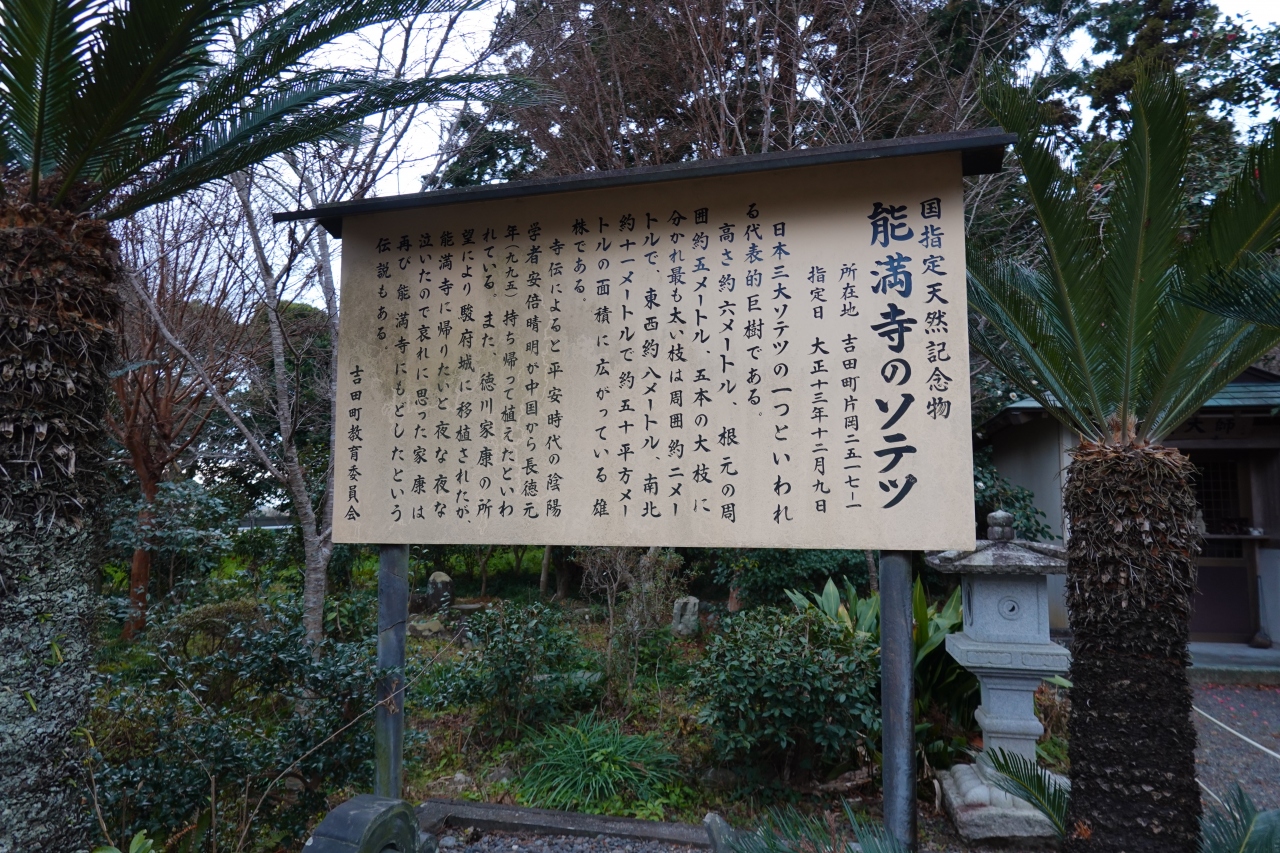 国指定天然記念物
能満寺のソテツ
所在地 吉田町片岡二五一七ー一
指定日 大正十三年十二月九日
日本三大ソテツの一つといわれ
る代表的巨樹である。
高さ約六メートル、根元の周
囲約五メートル、五本の大枝に
分かれ最も太い枝は周囲約二メー
トルで、東西約八メートル、南北
約十一メートルで約五十平方メー
トルの面積に広がっている雄
株である。
寺伝によると平安時代の陰陽
学者安倍晴明が中国から長徳元
年(九九五)持ち帰って植えたといわ
れている。また、徳川家康の所
望により駿府城に移植されたが、
能満寺に帰りたいと夜な夜な
泣いたので哀れに思った家康は
再び能満寺にもどしたという
伝説もある
吉田町教育委員会
大師